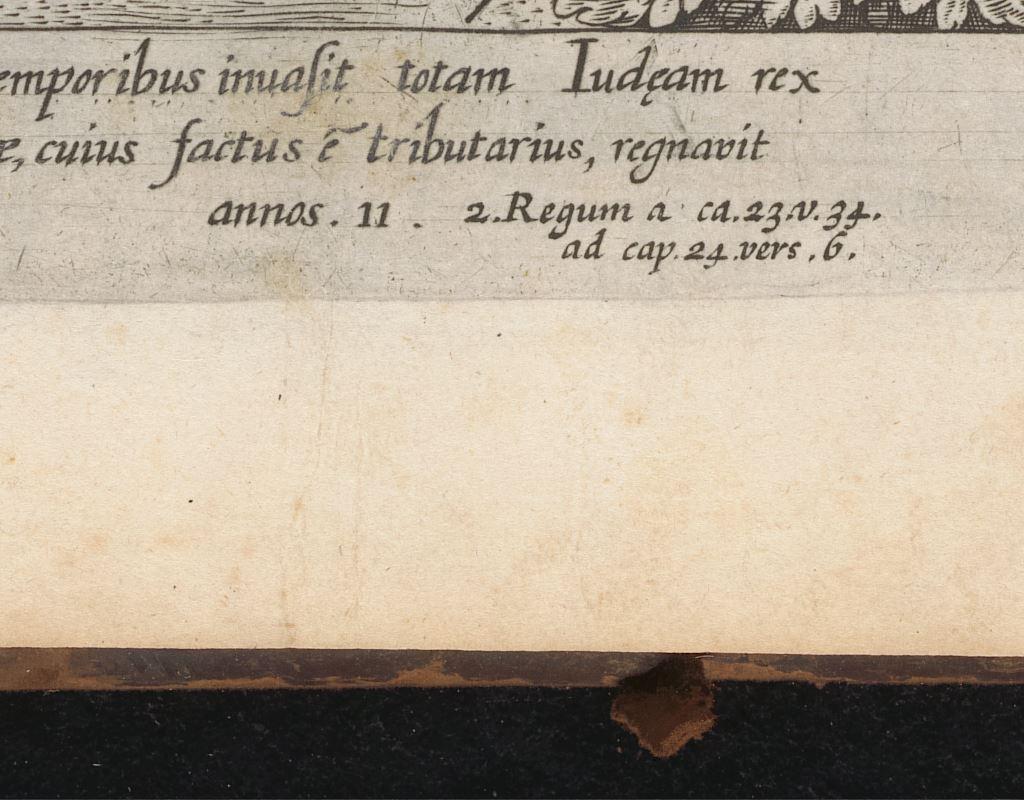 emporibus inuaſit totam Iudęam rex
æ, cuius factus ē tributarius, regnavit
annos. 11. 2. Regum a ca. 23. v. 34.
ad cap. 24. vers. 6.